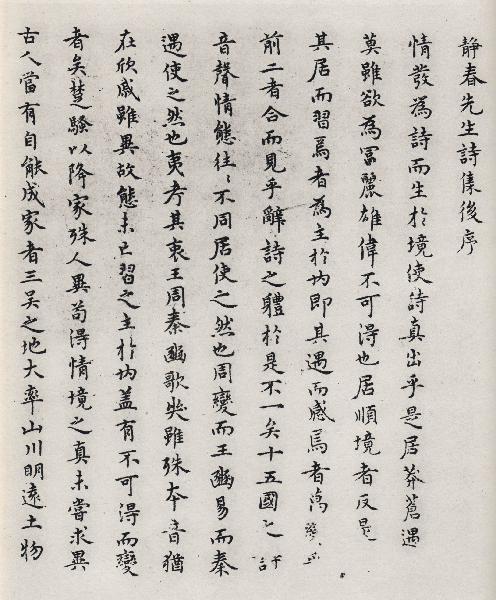 静春先生詩集後序
情發為詩而生於境使詩真出乎是居莽蒼遇
莫雖欲為冨麗雄偉不可得也居順境者反是
其居而習焉者為主於内即其遇而感焉者為
前二者合而見乎辭詩之體於是不一矣十五國之
音聲情態往〻不同居使之然也周變而王豳易而秦
遇使之然也夷考其衷王周秦豳歌哭雖殊本音猶
在欣戚雖異故態未亡習之主於内盖有不可得而變
者矣楚騷以降家殊人異苟得情境之真未嘗求異
古人當有自能成家者三吴之地大率山川明遠土物